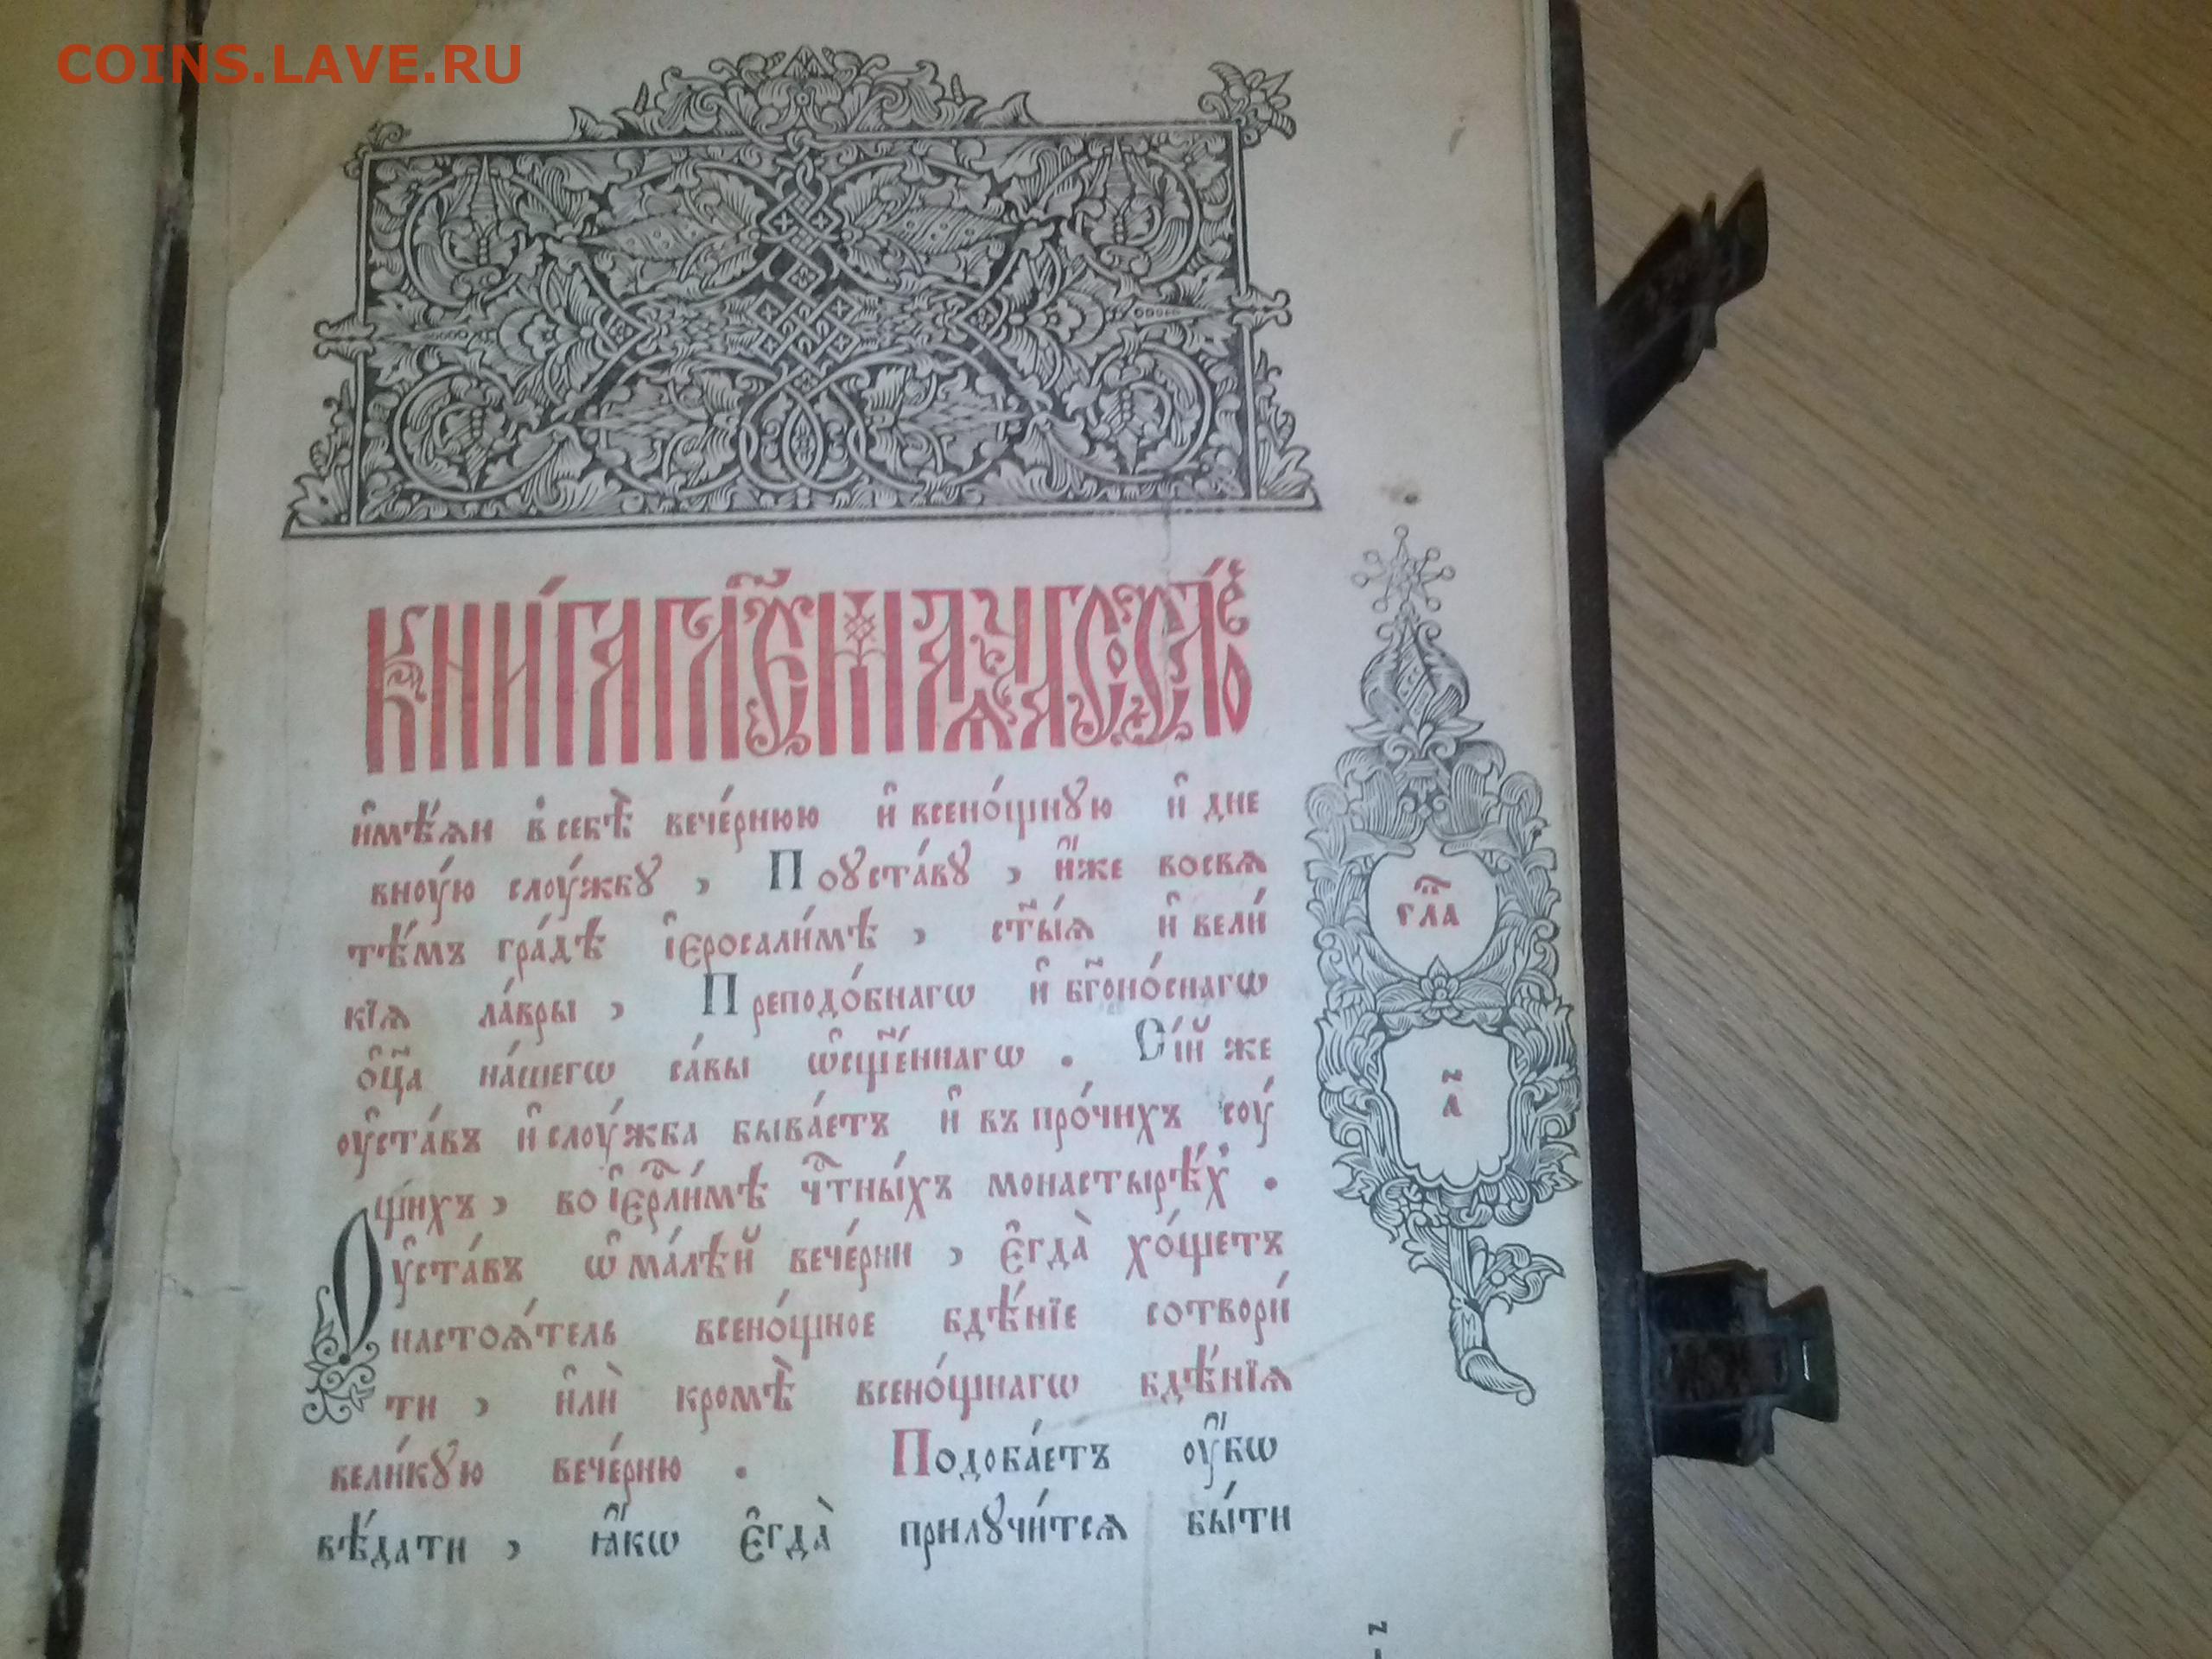 COINS.LAVE.RU
КНИ́ГА ГЛ҃ЕМАЯ ЧАСОСЛО́
и҆мѣ́ѧи в себѣ̀ вече́рнюю и҆ всено́щнꙋю и҆ дне
вноу́ю слоу́жбꙋ , По ᲂуста́вꙋ , и҆́же во свѧ
тѣ́мъ гра́дѣ і҆єросали́мѣ , ст҃ы́ѧ и҆ вели́
кїѧ ла́вры , Преподо́бнагѡ и҆ бг҃оно́снагѡ
ѻ҆ц҃а на́шегѡ са́вы ѡ҆сщ҃е́ннагѡ . Сі́й же
ᲂу҆ста́въ и҆ слоу́жба быва́етъ и҆ въ про́чихъ соу́
щихъ , во і҆єрⷭ҇ли́мѣ чⷭ҇тны́хъ монастырѣ́х .
Оу҆ста́въ ѡ҆ ма́лѣй вече́рни , є҆гда̀ хо́щетъ
настоѧ́тель всено́щное бдѣ́нїе сотвори́
ти , и҆лѝ кромѣ̀ всено́щнагѡ бдѣ́нїѧ
вели́кꙋю вече́рню . Подоба́етъ ᲂу҆́бѡ
вѣ́дати , ꙗ҆́кѡ є҆гда̀ прилꙋчи́тсѧ бы́ти
глаⷡ҇
а҃